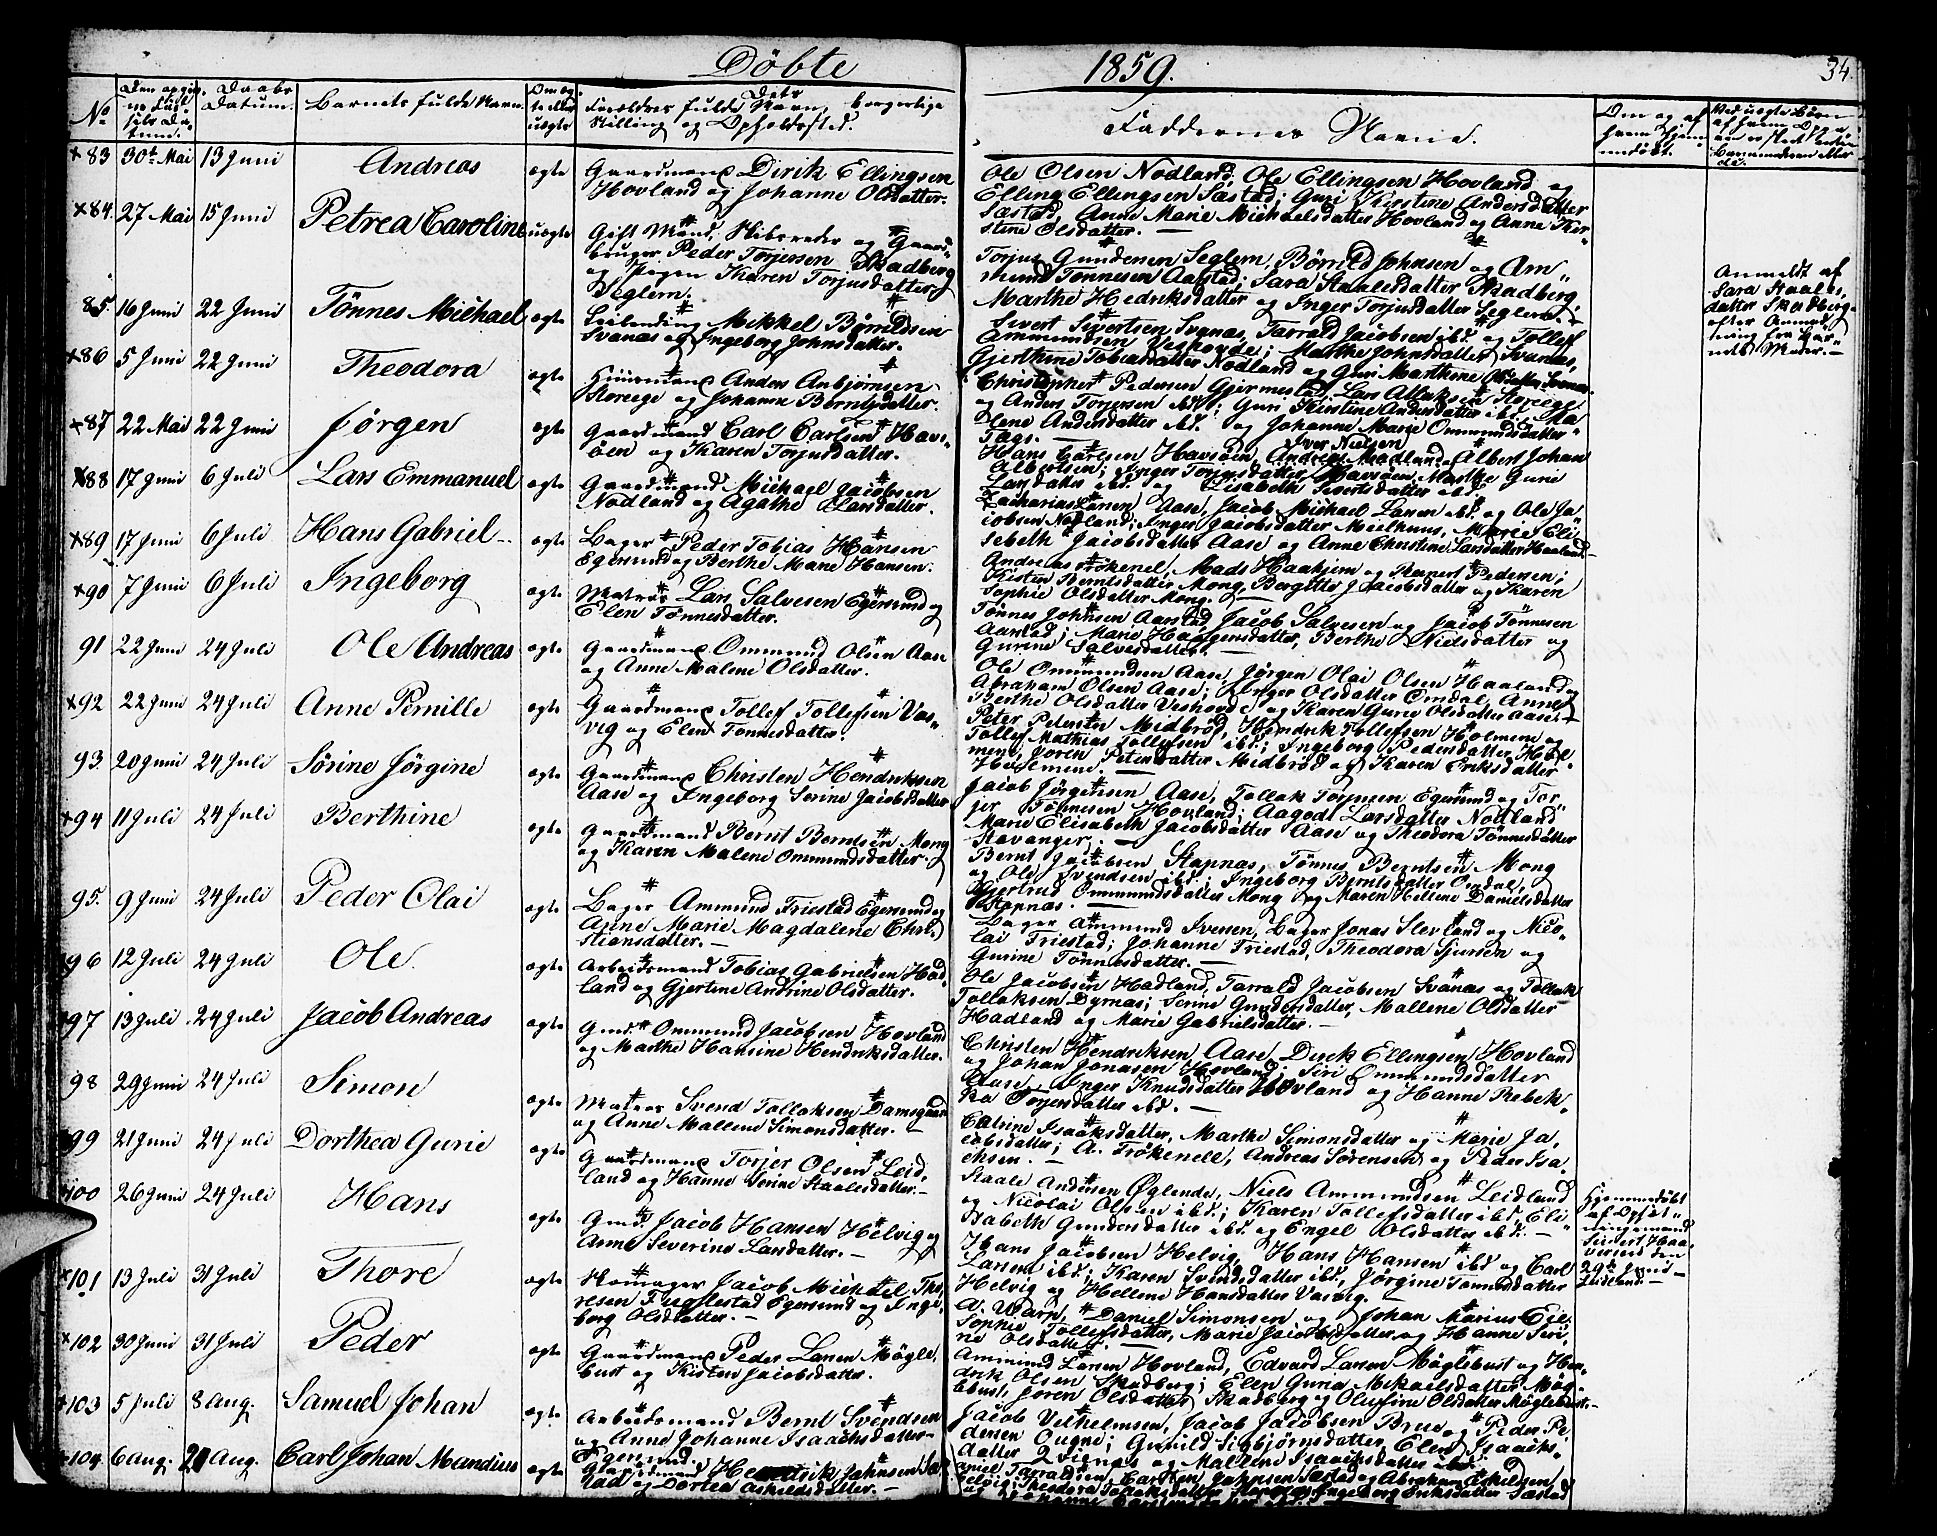 Döbte 1859. 34.
No
Daabs Datum.
Barnets fulde Navn.
Forældres fulde Navn, borgerlige Stilling og Opholdssted.
Faddernes Navne.
83 30te Mai 13 Juni Andreas ægte Gaardmand Dirik Ellingsen
Hovland og Johanne Olsdatter.
Ole Olsen Nodland, Ole Ellingsen Hovland og
Elling Ellingsen Sæstad; Guri Kirstine Andersdatter
Sæstad, Anne Marie Michaelsdatter Hovland og Anne Kir-
stine Olsdatter.
84. 27 Mai 15 Juni Petrea Caroline uægte Gift Mand, Skibsreder og Gaard-
bruger Peder Torjersen Skadberg
og Pigen Karen Torjusdatter
Seglem.
Torjus Gundersen Seglem, Börrild Johnsen og Am-
mund Tönnesen Aarstad; Sara Staalesdatter Skadberg,
Marthe Hedriksdatter og Inger Torjusdatter Seglem.
Anmeldt af
Sara Staales-
datter Skadberg
efter Anmod-
ning fra Bar-
nets Moder.
85. 16 Juni 22 Juni Tönnes Michael ægte Leilending Mikkel Börrildsen
Svanas og Ingeborg Johnsdatter.
Sivert Sivertsen Svanas, Tarrald Jacobsen ibd. og Tollef
Ammundsen Veshovde; Marthe Johnsdatter Svanas,
Gjerthine Tobiasdatter Nodland og Guri Marthine
86 5 Juni 22 Juni Theodora ægte Huusmand Anders Anbjörnsen
Storeege og Johanne Berntsdatter.
Christopher Pedersen Gjermestad, Lars Aslaksen Storeege
og Anders Torjersen ibd.; Guri Kirstine Andersdatter ibd., Ma-
lene Andersdatter ibd. og Johanne Marie Ommundsdatter
87 22 Mai 22 Juni Jörgen ægte Gaardmand Carl Carlsen Havs-
öen og Karen Torjusdatter.
Iver Nielsen
Hans Carlsen Havsöen, Andreas Madland, Albert Johan
Albertsen; Inger Torjusdatter Havsöen, Marthe Gurie
Larsdatter ibd. og Elisabeth Sivertsdatter ibd.
88 17 Juni 6 Juli Lars Emmanuel ægte Gaardmand Michael Jacobsen
Nodland og Agathe Larsdatter.
Zacharias Larsen Aase, Jacob Michael Larsen ibd. og Ole Ja-
cobsen Nodland; Inger Jacobsdatter Meelhuus, Marie Eli-
sebeth Jacobsdatter Aase og Anne Christine Larsdatter Haaland
89 17 Juni 6 Juli Hans Gabriel ægte Bager Peder Tobias Hansen
Egersund og Berthe Marie Hansen.
Andreas Frökenel, Mads Haakjem og Reinert Pedersen;
Kisten Berntsdatter Mong, Bergitte Jacobsdatter og Karen
Sophie Olsdatter Mong.
90 7 Juni 6 Juli Ingeborg ægte Matros Lars Salvesen Egersund og
Elen Tönnesdatter.
Tönnes Johnsen Aarstad, Jacob Salvesen og Jacob Tönnesen
Aarstad; Marie Haagensdatter, Berthe Nielsdatter og
Gurine Salvesdatter.
91 22 Juni 24 Juli Ole Andreas ægte Gaardmand Ommund Olsen Aase
og Anne Malene Olsdatter.
Ole Ommundsen Aase, Jörgen Olai Olsen Haaland og
Abraham Olsen Aase; Inger Olsdatter Omdal, Anne
Berthe Olsdatter Veshovde og Karen Gurie Olsdatter Aase.
92 22 Juni 24 Juli Anne Pernille ægte Gaardmand Tollef Tollefsen Vas-
vig og Elen Tonnesdatter.
Peter Petersen Midbröd, Hendrik Tollefsen Holmene og
Tollef Mathias Tollefsen ibd.; Ingeborg Pedersdatter Hol-
mene; Joren Petersdatter Midbröd og Karen Eriksdatter
93. 20 Juni 24 Juli Sörine Jörgine ægte Gaardmand Christen Hendriksen
Aase og Ingeborg Serine Jacobsdatter
Jacob Jörgensen Aase, Tollak Torjusen Egersund og Tor-
jer Tönnesen Hovland; Aagodt Larsdatter Nodland
Marie Elisabeth Jacobsdatter Aase og Theodora Tönnesdatter
Stavanger;
94 11 Juli 24 Juli Berthine ægte Gaardmand Bernt Berntsen Mong
og Karen Malene Ommundsdatter.
Bernt Jacobsen Stapnas, Tönnes Berntsen Mong
og Ole Svendsen ibd.; Ingeborg Berntsdatter Omdal,
Gjertrud Ommundsdatter Mong og Maren Hellene Danielsdatter
Stapnas.
95. 9 Juni 24 Juli Peder Olai ægte Bager Ammund Friestad Egersund og
Anne Marie Magdalene Chri-
stiansdatter.
Bager Ammund Svensen, Bager Jonas Slevland og Nico-
lai Friestad; Johanne Friestad, Theodora Sjursen og
Gurine Tönnesdatter.
96 12 Juli 24 Juli Ole. ægte Arbeidsmand Tobias Gabrielsen Had-
land og Gjertine Andrine Olsdatter.
Ole Jacobsen Hadland, Tarrald Jacobsen Svanas og Tollak
Tollaksen Dyrnas; Serine Gundersdatter, Mallene Olsdatter
Hadland og Marie Gabrielsdatter.
97 13 Juli 24 Juli Jacob Andreas ægte Gmd. Ommund Jacobsen Hovland
og Marthe Hansine Hendriksdatter.
Christen Hendriksen Aase, Dirik Ellingsen Hovland
og Johan Jonassen Hovland; Siri Ommundsdatter
Aase, Inger Knudsdatter Hovland og Hanne Rebek-
ka Torjersdatter ibd.
98 29 Juni 24 Juli Simon ægte Matros Svend Tollaksen Damsgaard
og Anne Mallene Simonsdatter.
Catrine Isaaksdatter, Marthe Simonsdatter og Marie Ja-
cobsdatter; A. Frökenell, Andreas Sörensen og Peder Isa-
chsen.
99 21 Juni 24 Juli Dorthea Gurie ægte Gaardmand Torjer Olsen Leid-
land og Hanne Serine Staalesdatter.
Staale Andersen Öglende, Niels Ammundsen Leidland
og Nicolai Olsen ibd.; Karen Tollefsdatter ibd., Eli-
sabeth Gundersdatter ibd. og Engel Olsdatter ibd.
100 26 Juni 24 Juli Hans ægte Gmd. Jacob Hansen Helvig og
Anne Severine Larsdatter.
Hans Jacobsen Helvig, Hans Hansen ibd. og Carl
Larsen ibd.; Karen Svendsdatter ibd., Jörgine Tönnesdatter
Helvig og Hellene Hansdatter Vasvig.
Hjemmedöbt
af Opsit-
ningsmand
Sivert Haa-
versen den
29de Juni
Leidland.
101 13 Juli 31 Juli Thore ægte Skomager Jacob Michael Tho-
resen Fuglestad Egersund og Inge-
borg Olsdatter.
A. Warp, Daniel Simonsen og Johan Marius Eie;
Sophie Tollefsdatter, Marie Jacobsdatter og Hanne Seri-
ne Olsdatter.
102 30 Juni 31 Juli Peder ægte Gaardmand Peder Larsen Mögle-
bust og Kisten Jacobsdatter.
Ammund Larsen Hovland, Edvard Larsen Möglebust og Hen-
drik Olsen Skadberg; Elen Guria Mikaelsdatter Mög-
lebust, Joren Olsdatter Skadberg og Olufine Olsdatter Möglebust.
103 5 Juli 8 Aug. Samuel Johan ægte Arbeidsmand Bernt Svendsen
og Anne Johanne Isaachsdatter
Egersund.
Jacob Vilhelmsen, Jacob Jacobsen Brue og Peder Pe-
dersen Ougne; Gunild Sigbjörnsdatter, Elen Isaachs-
datter og Mallene Isaachsdatter ibd.
104. 6 Aug. 21 Aug. Carl Johan Mandius ægte Gaardmand Hendrik Johnsen Sæ-
stad og Dortea Askildsdatter.
Daniel Tarraldsen, Carsten Johnsen Sæstad og Abraham Askildsen